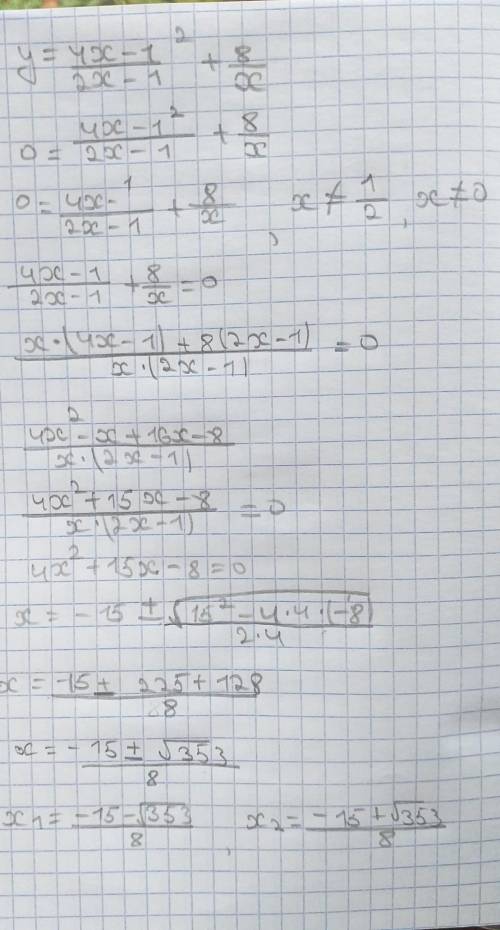 y = (4x - 1²)/(2x - 1) + 8/x
0 = (4x - 1²)/(2x - 1) + 8/x
0 = (4x - 1)/(2x - 1) + 8/x , x ≠ 1/2 , x ≠ 0
(4x - 1)/(2x - 1) + 8/x = 0
(x · (4x - 1) + 8(2x - 1))/(x · (2x - 1)) = 0
(4x² - x + 16x - 8)/(x · (2x - 1))
(4x² + 15x - 8)/(x · (2x - 1)) = 0
4x² + 15x - 8 = 0
x = - 15 ± √(15² - 4 · 4 · (-8)/(2 · 4)
x = (-15 ± 225 + 128)/8
x = - (15 ± √353)/8
x₁ = (-15 - √353)/8 , x₂ = (-15 + √353)/8